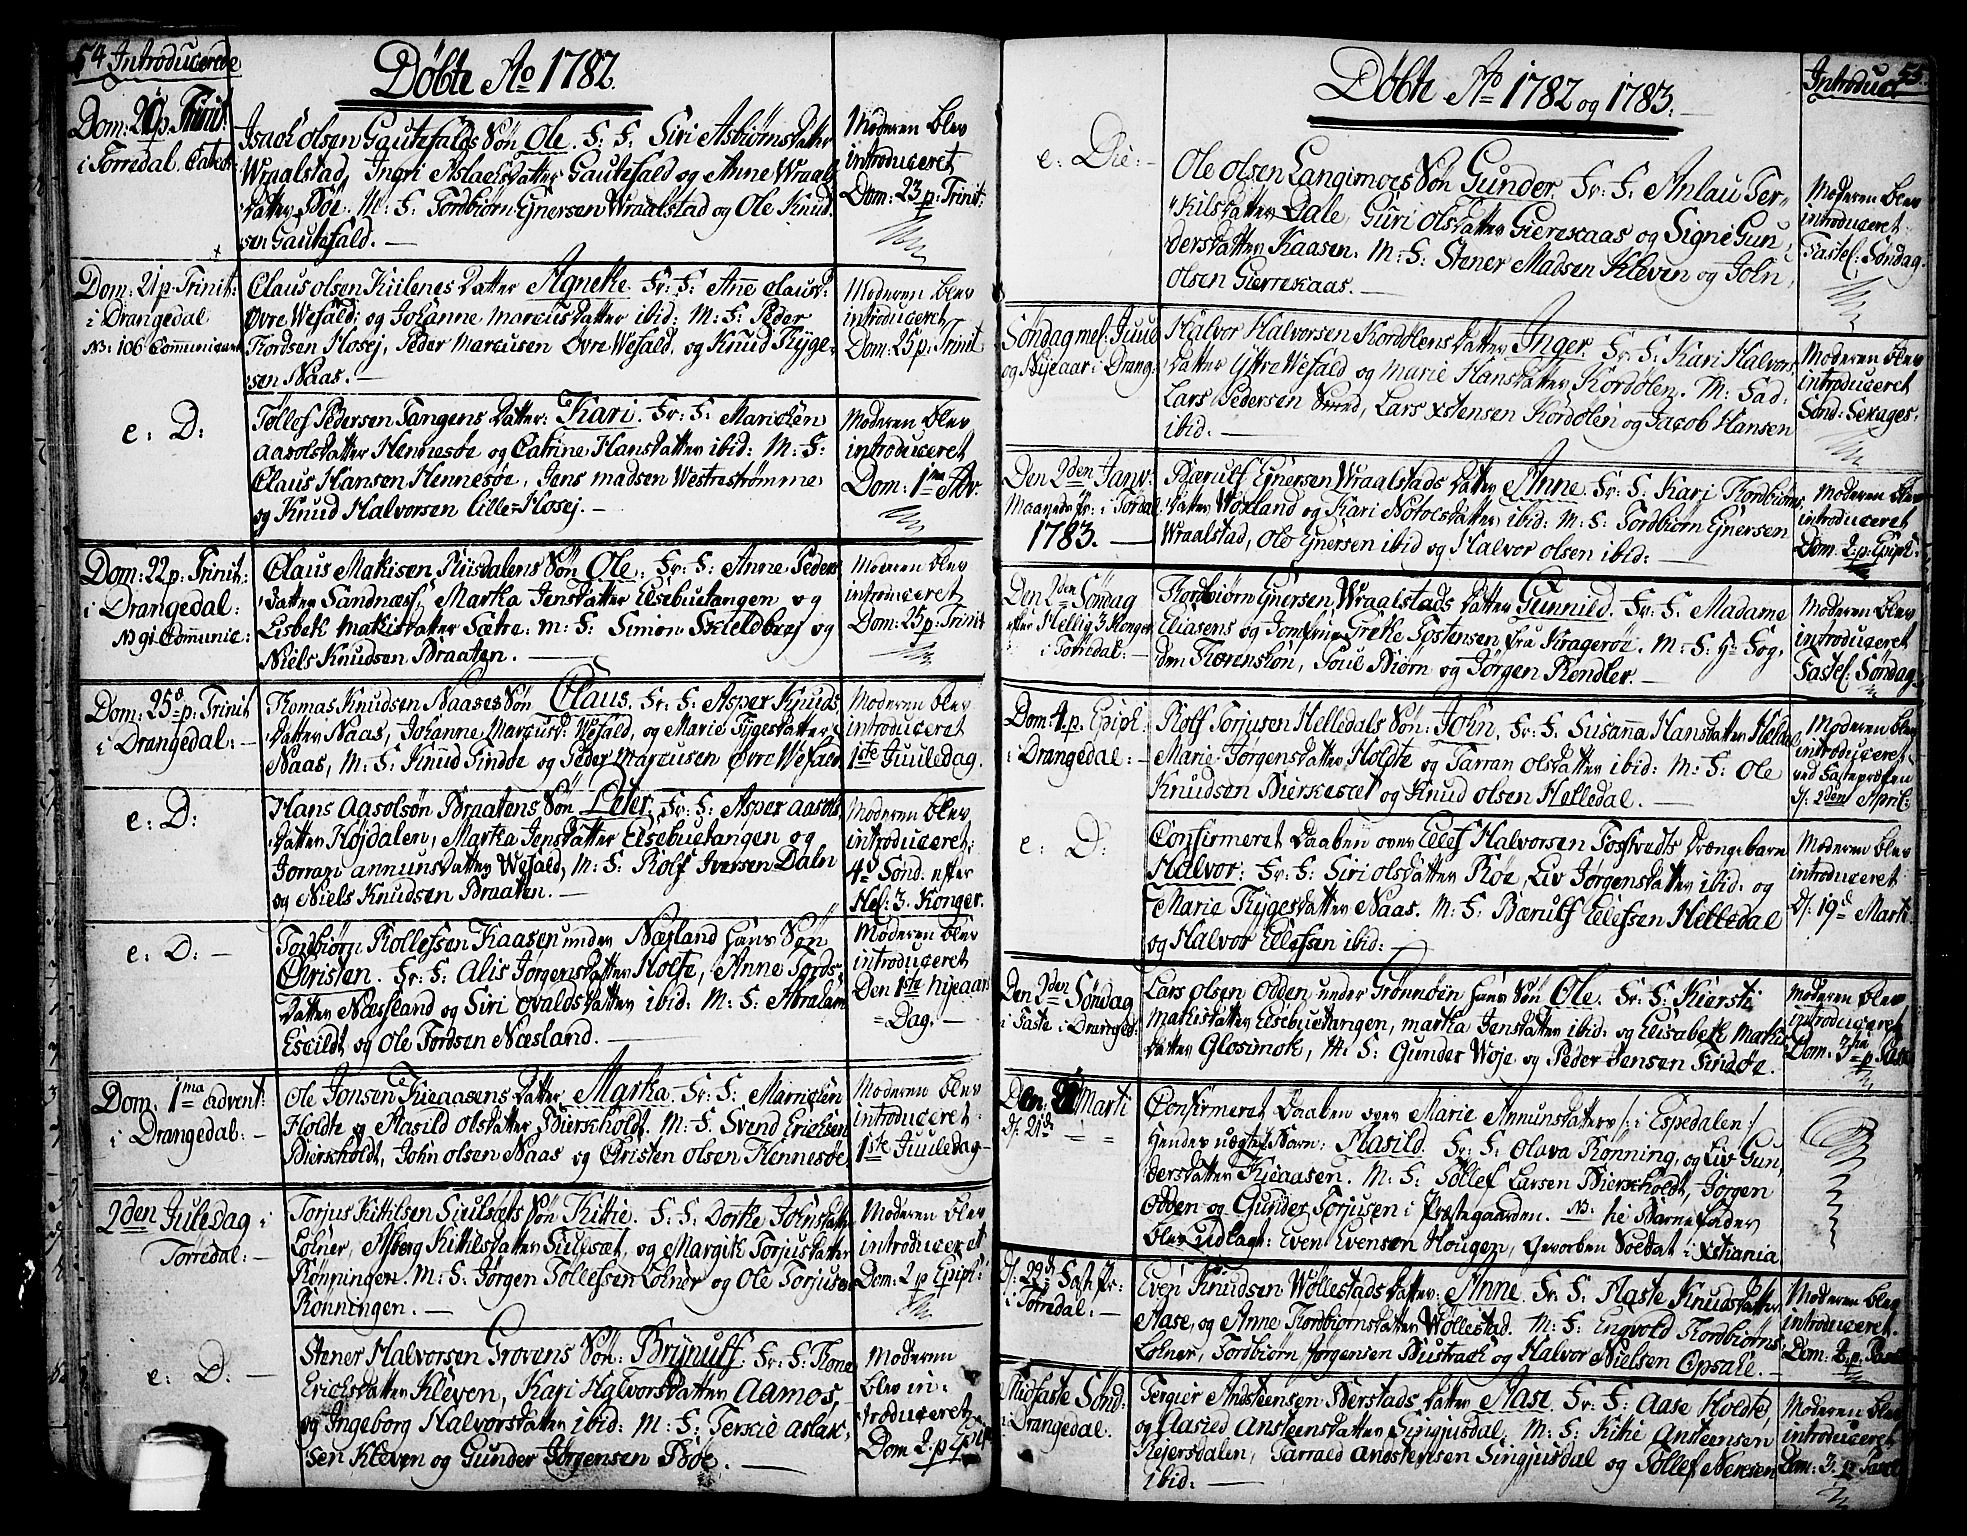 54 Introducerede
Døbte Ao 1782.
Dom: 20 p. Trinit:
i Torredal. Catech:
Isach olsen Gautefalds Søn Ole. F: F: Siri Asbiørnsdatter
Wraalstad, Ingri Aslachsdatter Gautefald og Anne Wraals
datter Bøe. M: F: Tordbiørn Gjnersen Wraalstad og Ole Knud
sen Gautefald. —
Moderen blev
introduceret
Dom: 23 p: Trinit:
Dom: 21 p. Trinit:
i Drangedal
NB: 106 Communicant
Claus olsen Kiilenes datter Agnethe. Fr: F: Anne olausd:
Øvre Wefald: og Johanne Marcusdatter ibid: M: F: Peder
Tordsen Hosej, Peder Marcusen Øvre Wefald, og Knud Thyge-
sen Naas. —
Moderen blev
introduceret
Dom: 25 p: Trinit
e: D:
Tøllef Pedersen Tangens datter: Kari. Fr: F: Marichen
Aasolsdatter Hennesøe og Catrine Hansdatter ibid: M: F:
Claus Hansen Hennesøe, Jens madsen Westrestrømme
og Knud Halvorsen Lille-Hosej. —
Moderen blev
introduceret
Dom: 1ma Adv.
Dom: 22 p: Trinit:
i Drangedal:
NB 91 Communic:
Claus Mathisen Riisdalens Søn Ole. Fr: F: Anne Peders
datter Sandnæs, Martha Jensdatter Elsebuetangen og
Lisbeth Mathisdatter Sætre: M: F: Simon Skieldbrej og
Niels Knudsen Braaten. —
Moderen blev
introduceret
Dom: 25 p: Trinit
Dom: 25 p: Trinit
i Drangedal: —
Thomas Knudsen Naases Søn Claus. Fr: F: Asper Knuds
datter Naas, Johanne Marcusd: Wefald, og Marie Tygesdatter
Naas, M: F: Knud Sindøe og Peder Marcusen Øvre Wefald
Moderen blev
introduceret
1ste Juuledag.
e: D:
Hans Aasolsøn Braatens Søn Peter. Fr: F: Asper aasols
datter Højdalen, Martha Jensdatter Elsebuetangen og
Jorran annunsdatter Wefald, M: F: Rolf Iversen Daln
og Niels Knudsen Braaten. —
Moderen blev
introduceret:
4d Sönd. efter
Hel: 3. Konger.
e: D: —
Tordbiørn Rollefsen Kaasen under Næsland hans Søn
Christen. Fr: F: Alis Jørgensdatter Holte, Anne Tords-
datter Næssland og Siri ovaldsdatter ibid: M: F: Abraham
Eskildt og Ole Tordsen Næsland. —
Moderen blev
introduceret
Den 1ste Nyeaars
Dag. —
Dom: 1ma advent:
i Drangedal: —
Ole Jonsen Kieaasens datter Martha. Fr: F: Marrichen
Holdte og Aasild olsdatter Bierkholdt. M: F: Svend Erichsen
Bierkholdt, John olsen Naas og Christen olsen Hennesøe
Moderen blev
introduceret:
1ste Juuledag —
2den Juledag i
Torredal: —
Torjus Kittilsen Siulsæts Søn Kittil. F: F: Dorthe Johnsdatter
Lolner, Asberg Kittilsdatter Siulsæt, og Margith Torjusdatter
Rønningen. M: F: Jørgen Tollefsen Lolner og Ole Torjusen
Rønningen. —
Moderen blev
introduceret
Dom: 2 p Epiph:
e: D: —
Stener Halvorsen Grovens Søn: Brynulf Fr: F: Tone
Erichsdatter Kleven, Kari Halvorsdatter Aamos,
og Ingeborg Halvorsdatter ibid: M: F: Terkie aslak-
sen Kleven og Gunder Jørgensen Bøe. —
Moderen
blev in:
troduceret
Dom 2. p Epip
Døbte Ao 1782 og 1783. —
Introduct
55.
e: Die: —
Ole olsen Langimoes Søn Gunder. Fr: F: Anlau Ter-
kilsdatter Dale, Guri olsdatter Gierrekaas og Signe Gun-
dersdatter Kaasen. M: F: Stener Madsen Kleven og John
olsen Gierrekaas. —
Moderen blev
introduceret:
Fastel: Søndag.
Søndag mel. Juul
og Nyeaar i Drang:
Halvor Halvorsen Kordølens datter Inger. Fr: F: Kari Halvors
datter Yttre Wefald og Marie Hansdatter Kordølen. M: Fad:
Lars Pedersen Smed, Lars Xstensen Kordølen og Jacob Hansen
ibid: —
Moderen blev
introduceret
Sønd: Sexages:
Den 2den Janv:
Maaneds Pr: i Tordal
1783. —
Bærulf Gjnersen Wraalstads datter Anne. Fr: F: Kari Tordbiørns
datter Woxland og Kari Notolsdatter ibid: M: F: Tordbiørn Gjnersen
Wraalstad, Ole Gjnersen ibid og Halvor olsen ibid: —
Moderen blev
introduceret
Dom: 2. p: Epiph:
Den 2den Søndag
efter Hellig 3 Konger
i Torredal: —
Thordbiørn Gjnersen Wraalstads datter Gunnild. Fr: F: Madame
Eliasens og Jomfrue Grethe Tostensen fra Kragerøe. M: F: Hr. Fog,
den Thorenshøn, Poul Biørn og Jørgen Kendler. —
Moderen blev
introduceret
Fastel: Søndag
Dom 4. p. Epiph:
i Drangedal: —
Rolf Torjusen Helledals Søn: John, Fr: F: Susanna Hansdatter Heldal
Marie Jørgensdatter Holdte og Tarran olsdatter ibid: M: F: Ole
Knudsen Bierkeset og Knud olsen Helledal. —
Moderen blev
introduceret
ved Fasteprøken
d. 2den April:
e: D:
Confirmeret daaben over Ellef Halvorsen Tostvedts drængebarn
Halvor: Fr: F: Siri olsdatter Bøe, Liv Jørgensdatter ibid: og
Marie Thygesdatter Naas. M: F: Bærulf Ellefsen Helledal
og Halvor Ellefsen ibid: —
Moderen blev
introduceret
d. 19d Marti
Den 2den Søndag
i Faste i Dranged:
Lars olsen Odden under Grønnøen hans Søn Ole. Fr: F: Kiersti
Mathisdatter Elsebuetangen, martha Jensdatter ibid: og Elisabeth Mathis
datter Glosimoth, M: F: Gunder Woje og Peder Jensen Sindøe.
Moderen blev
introduceret
Dom: 3tia p. Pasc
Marti
d: 21d
Confirmeret daaben over Marie Annunsdatters /: i Espedalen :/
hendes uægte Barn: Aasild. Fr: F: Olava Rønning, og Liv Gun-
dersdatter Kieaasen. M: F: Tollef Larsen Bierkholdt, Jørgen
Odden og Gunder Torjusen i Præstegaarden. NB. til Barnefader
blev udlagt: Even Evensen Hougen, Gevorben Soldat i Xstiania
d. 29d Fastepr:
i Torredal: —
Even Knudsen Wøllestads datter: Anne. Fr: F: Aaste Knudsdatter
Aase, og Anne Tordbiørnsdatter Wøllestad. M: F: Engvold Tordbiørns:
Lolner, Tordbiørn Jørgensen Bustrack og Halvor Nielsen Opsahl. —
Moderen blev
introduceret.
Dom: 2. p. Pasc
Midfaste Sönd:
i Drangedal:
Tergier Andsteensen Berstads datter Aase. Fr: F: Aase Holdte,
og Aasild Ansteensdatter Singjusdal: M: F: Kittil Ansteensen
Rejersdalen, Tarrald Anstensen Singjusdal og Tollef Nersen
ibid: —
Moderen blev
introduceret
Dom: 3. p Pasc